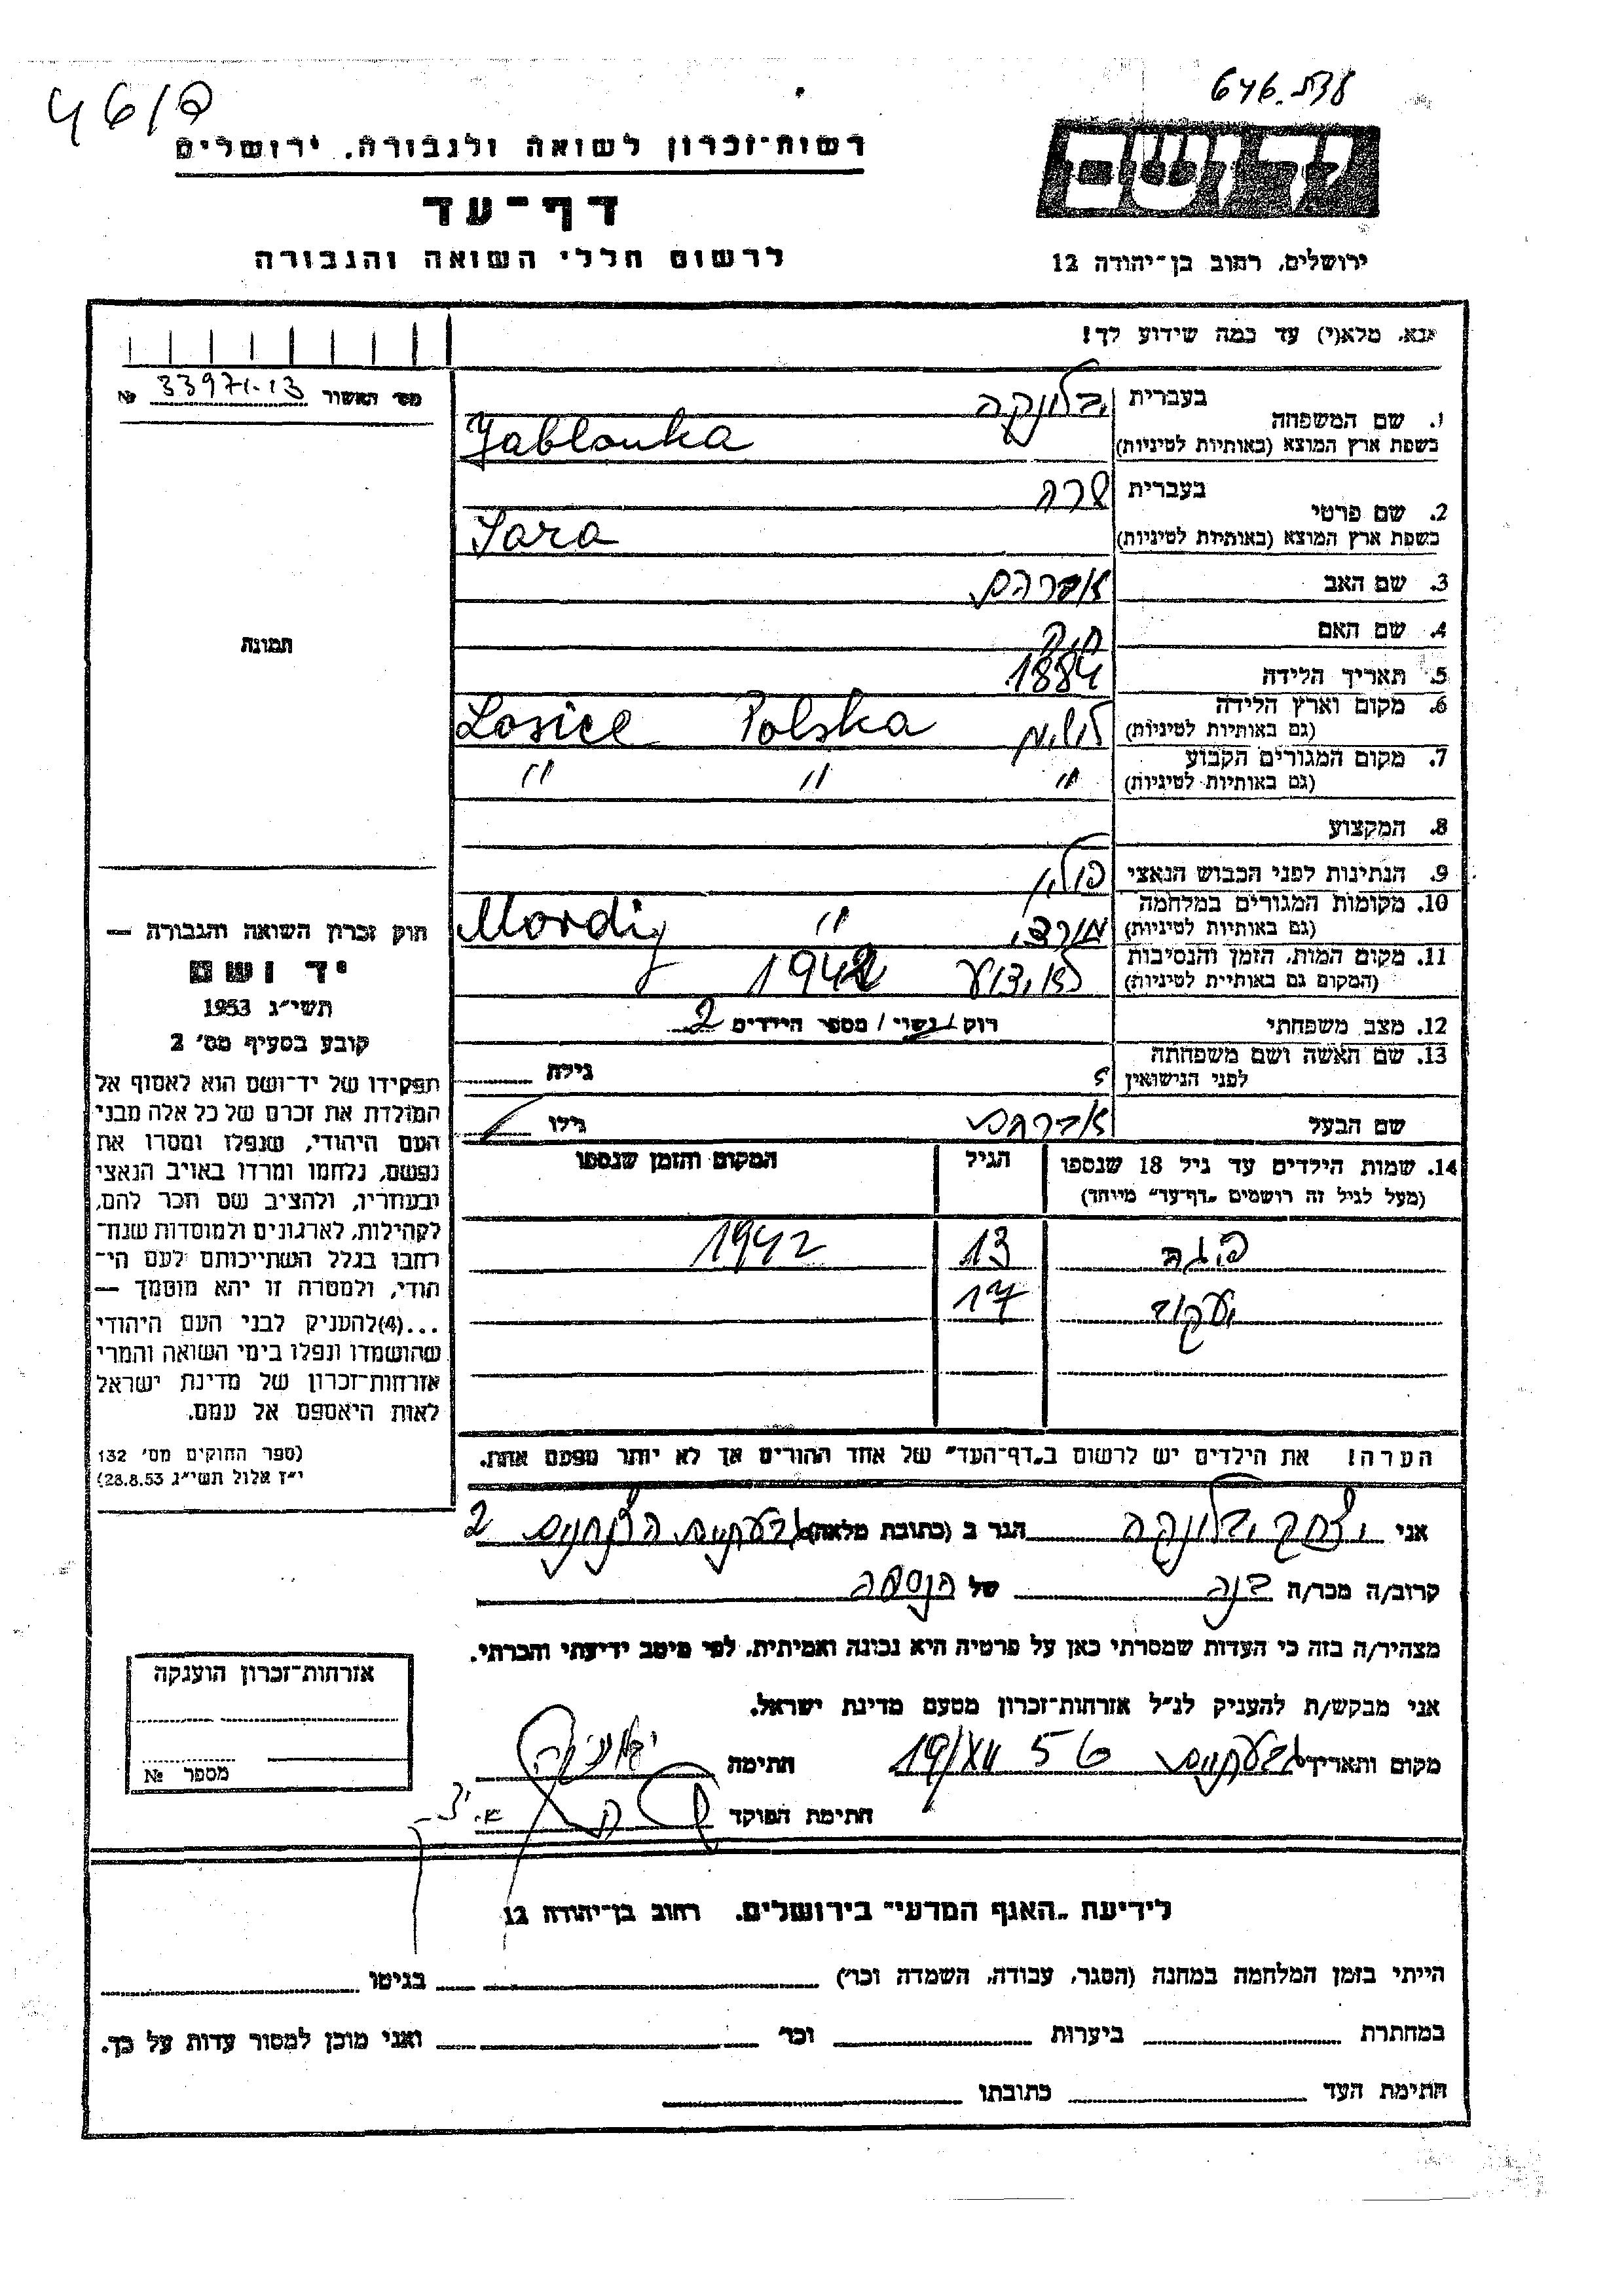 46/פ
עדת. 646
רשות-זכרון לשואה ולגבורה. ירושלים
יד ושם
דף-עד
לרשום חללי השואה והגבורה
ירושלים, רחוב בן-יהודה 12
אנא, מלא(י) עד כמה שידוע לך!
מס' האשור № 33971-13
תמונה
1. שם המשפחה
בעברית יבלונקה
בשפת ארץ המוצא (באותיות לטיניות) Jablonka
2. שם פרטי
בעברית שרה
בשפת ארץ המוצא (באותיות לטיניות) Sara
3. שם האב אברהם
4. שם האם חיה
5. תאריך הלידה 1884
6. מקום וארץ הלידה
(גם באותיות לטיניות) Losice Polska
7. מקום המגורים הקבוע
(גם באותיות לטיניות) " " "
8. המקצוע
9. הנתינות לפני הכבוש הנאצי פולין
10. מקומות המגורים במלחמה
(גם באותיות לטיניות) מורדי " Mordy
11. מקום המות, הזמן והנסיבות
(המקום גם באותיות לטיניות) לא ידוע 1942
12. מצב משפחתי רוק / נשוי / מספר הילדים 2
13. שם האשה ושם משפחתה
לפני הנישואין ? גילה
שם הבעל אברהם גילו
14. שמות הילדים עד גיל 18 שנספו הגיל המקום והזמן שנספו
(מעל לגיל זה רושמים „דף-עד" מיוחד)
פיגה 13 1942
יעקוב 17
הערה! את הילדים יש לרשום ב„דף-העד" של אחד ההורים אך לא יותר מפעם אחת.
חוק זכרון השואה והגבורה —
יד ושם
תשי"ג 1953
קובע בסעיף מס' 2
תפקידו של יד-ושם הוא לאסוף אל
המולדת את זכרם של כל אלה מבני
העם היהודי, שנפלו ומסרו את
נפשם, נלחמו ומרדו באויב הנאצי
ובעוזריו, ולהציב שם וזכר להם,
לקהילות, לארגונים ולמוסדות שנח-
רבו בגלל השתייכותם לעם הי-
הודי, ולמטרה זו יהא מוסמך —
...(4)להעניק לבני העם היהודי
שהושמדו ונפלו בימי השואה והמרי
אזרחות-זכרון של מדינת ישראל
לאות היאספם אל עמם.
(ספר החוקים מס' 132
י"ז אלול תשי"ג 28.8.53)
אני יצחק יבלונקה הגר ב (כתובת מלאה) גבעתיים 2
קרוב/ה מכר/ה בנה של הנספה
מצהיר/ה בזה כי העדות שמסרתי כאן על פרטיה היא נכונה ואמיתית, לפי מיטב ידיעתי והכרתי.
אני מבקש/ת להעניק לנ"ל אזרחות-זכרון מטעם מדינת ישראל.
מקום ותאריך גבעתיים 19/XII 56 חתימה
חתימת הפוקד
אזרחות-זכרון הוענקה
מספר №
לידיעת „האגף המדעי" בירושלים. רחוב בן-יהודה 12
הייתי בזמן המלחמה במחנה (הסגר, עבודה, השמדה וכו') בגיטו
במחתרת ביערות וכו' ואני מוכן למסור עדות על כך.
חתימת העד כתובתו